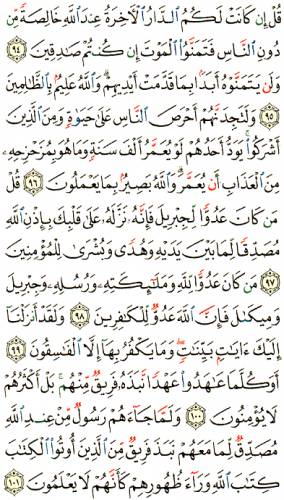 قُلْ إِن كَانَتْ لَكُمُ ٱلدَّارُ ٱلْأَخِرَةُ عِندَ ٱللَّهِ خَالِصَةً مِّن
دُونِ ٱلنَّاسِ فَتَمَنَّوُا۟ ٱلْمَوْتَ إِن كُنتُمْ صَٰدِقِينَ ٩٤
وَلَن يَتَمَنَّوْهُ أَبَدًۢا بِمَا قَدَّمَتْ أَيْدِيهِمْ وَٱللَّهُ عَلِيمٌۢ بِٱلظَّٰلِمِينَ
٩٥ وَلَتَجِدَنَّهُمْ أَحْرَصَ ٱلنَّاسِ عَلَىٰ حَيَوٰةٍ وَمِنَ ٱلَّذِينَ
أَشْرَكُوا۟ يَوَدُّ أَحَدُهُمْ لَوْ يُعَمَّرُ أَلْفَ سَنَةٍ وَمَا هُوَ بِمُزَحْزِحِهِۦ
مِنَ ٱلْعَذَابِ أَن يُعَمَّرَ وَٱللَّهُ بَصِيرٌۢ بِمَا يَعْمَلُونَ ٩٦ قُلْ
مَن كَانَ عَدُوًّا لِّجِبْرِيلَ فَإِنَّهُۥ نَزَّلَهُۥ عَلَىٰ قَلْبِكَ بِإِذْنِ ٱللَّهِ
مُصَدِّقًا لِّمَا بَيْنَ يَدَيْهِ وَهُدًى وَبُشْرَىٰ لِلْمُؤْمِنِينَ
٩٧ مَن كَانَ عَدُوًّا لِّلَّهِ وَمَلَٰٓئِكَتِهِۦ وَرُسُلِهِۦ وَجِبْرِيلَ
وَمِيكَىٰلَ فَإِنَّ ٱللَّهَ عَدُوٌّ لِّلْكَٰفِرِينَ ٩٨ وَلَقَدْ أَنزَلْنَآ
إِلَيْكَ ءَايَٰتٍۭ بَيِّنَٰتٍ وَمَا يَكْفُرُ بِهَآ إِلَّا ٱلْفَٰسِقُونَ ٩٩
أَوَكُلَّمَا عَٰهَدُوا۟ عَهْدًا نَّبَذَهُۥ فَرِيقٌ مِّنْهُم بَلْ أَكْثَرُهُمْ
لَا يُؤْمِنُونَ ١٠٠ وَلَمَّا جَآءَهُمْ رَسُولٌ مِّنْ عِندِ ٱللَّهِ
مُصَدِّقٌ لِّمَا مَعَهُمْ نَبَذَ فَرِيقٌ مِّنَ ٱلَّذِينَ أُوتُوا۟ ٱلْكِتَٰبَ
كِتَٰبَ ٱللَّهِ وَرَآءَ ظُهُورِهِمْ كَأَنَّهُمْ لَا يَعْلَمُونَ ١٠١